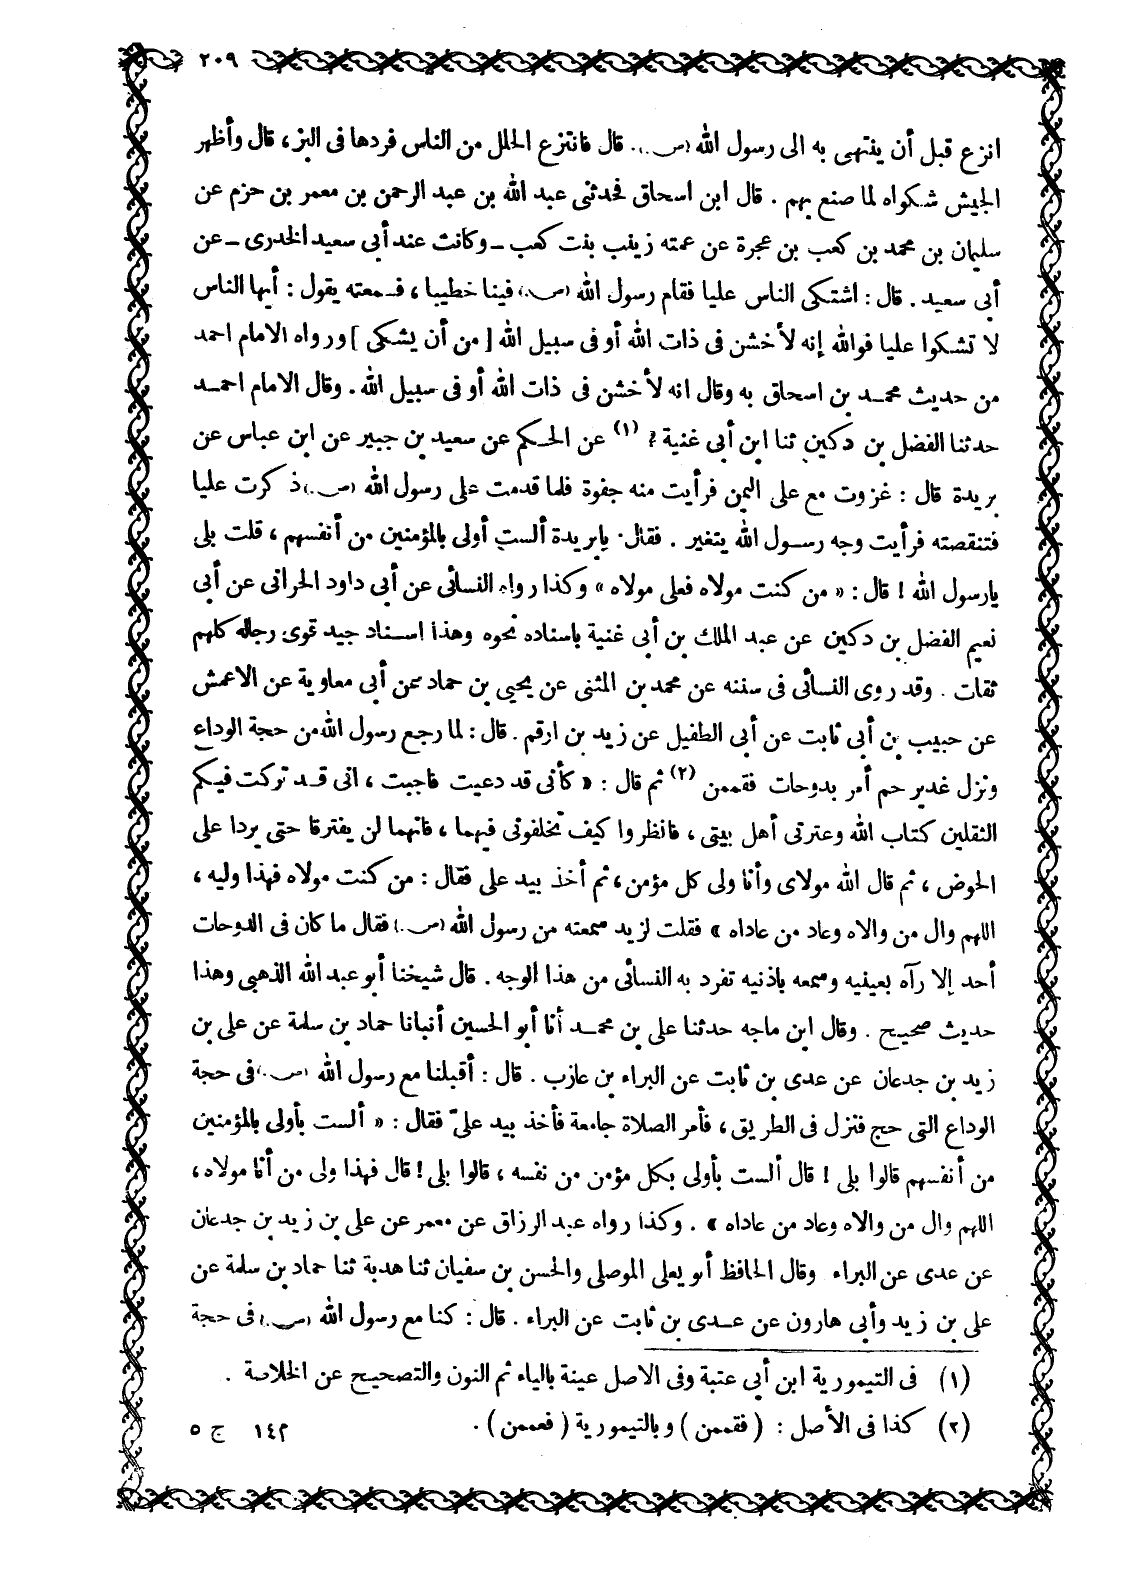 ٢٠٩
انزع قبل أن ينتهى به الى رسول الله (ص). قال فانتزع الحلل من الناس فردها فى البز، قال وأظهر
الجيش شكواه لما صنع بهم. قال ابن اسحاق فحدثنى عبد الله بن عبد الرحمن بن معمر بن حزم عن
سليمان بن محمد بن كعب بن عجرة عن عمته زينب بنت كعب ــ وكانت عند أبى سعيد الخدرى ــ عن
أبى سعيد. قال: اشتكى الناس عليا فقام رسول الله (ص) فينا خطيبا، فسمعته يقول: أيها الناس
لا تشكوا عليا فوالله إنه لأخشن فى ذات الله أو فى سبيل الله [ من أن يشكى ] ورواه الامام احمد
من حديث محمد بن اسحاق به وقال انه لأخشن فى ذات الله أو فى سبيل الله. وقال الامام احمد
حدثنا الفضل بن دكين ثنا ابن أبى غنية ؟ (١) عن الحكم عن سعيد بن جبير عن ابن عباس عن
بريدة قال: غزوت مع على اليمن فرأيت منه جفوة فلما قدمت على رسول الله (ص) ذكرت عليا
فتنقصته فرأيت وجه رسول الله يتغير. فقال. يابريدة ألست أولى بالمؤمنين من أنفسهم، قلت بلى
يارسول الله ! قال: « من كنت مولاه فعلى مولاه » وكذا رواه النسائى عن أبى داود الحرانى عن أبى
نعيم الفضل بن دكين عن عبد الملك بن أبى غنية باسناده نحوه وهذا اسناد جيد قوى رجاله كلهم
ثقات. وقد روى النسائى فى سننه عن محمد بن المثنى عن يحيى بن حماد عن أبى معاوية عن الاعمش
عن حبيب بن أبى ثابت عن أبى الطفيل عن زيد بن ارقم. قال: لما رجع رسول الله من حجة الوداع
ونزل غدير خم أمر بدوحات فقممن (٢) ثم قال: « كأنى قد دعيت فاجبت، انى قد تركت فيكم
الثقلين كتاب الله وعترتى أهل بيتى، فانظروا كيف تخلفونى فيهما، فانهما لن يفترقا حتى يردا على
الحوض، ثم قال الله مولاى وأنا ولى كل مؤمن، ثم أخذ بيد على فقال: من كنت مولاه فهذا وليه،
اللهم وال من والاه وعاد من عاداه » فقلت لزيد سمعته من رسول الله (ص) فقال ما كان فى الدوحات
أحد إلا رآه بعينيه وسمعه باذنيه تفرد به النسائى من هذا الوجه. قال شيخنا أبو عبد الله الذهبى وهذا
حديث صحيح. وقال ابن ماجه حدثنا على بن محمد أنا أبو الحسين أنبانا حماد بن سلمة عن على بن
زيد بن جدعان عن عدى بن ثابت عن البراء بن عازب. قال: أقبلنا مع رسول الله (ص) فى حجة
الوداع التى حج فنزل فى الطريق، فأمر الصلاة جامعة فأخذ بيد علىّ فقال: « ألست بأولى بالمؤمنين
من أنفسهم قالوا بلى ! قال ألست بأولى بكل مؤمن من نفسه، قالوا بلى ! قال فهذا ولى من أنا مولاه،
اللهم وال من والاه وعاد من عاداه ». وكذا رواه عبد الرزاق عن معمر عن على بن زيد بن جدعان
عن عدى عن البراء وقال الحافظ أبو يعلى الموصلى والحسن بن سفيان ثنا هدبة ثنا حماد بن سلمة عن
على بن زيد وأبى هارون عن عدى بن ثابت عن البراء. قال: كنا مع رسول الله (ص) فى حجة
(١) فى التيمورية ابن أبى عتبة وفى الاصل عينة بالياء ثم النون والتصحيح عن الخلاصة.
(٢) كذا فى الأصل: ( فقممن ) وبالتيمورية ( فعممن ).
م١٤ ج ٥